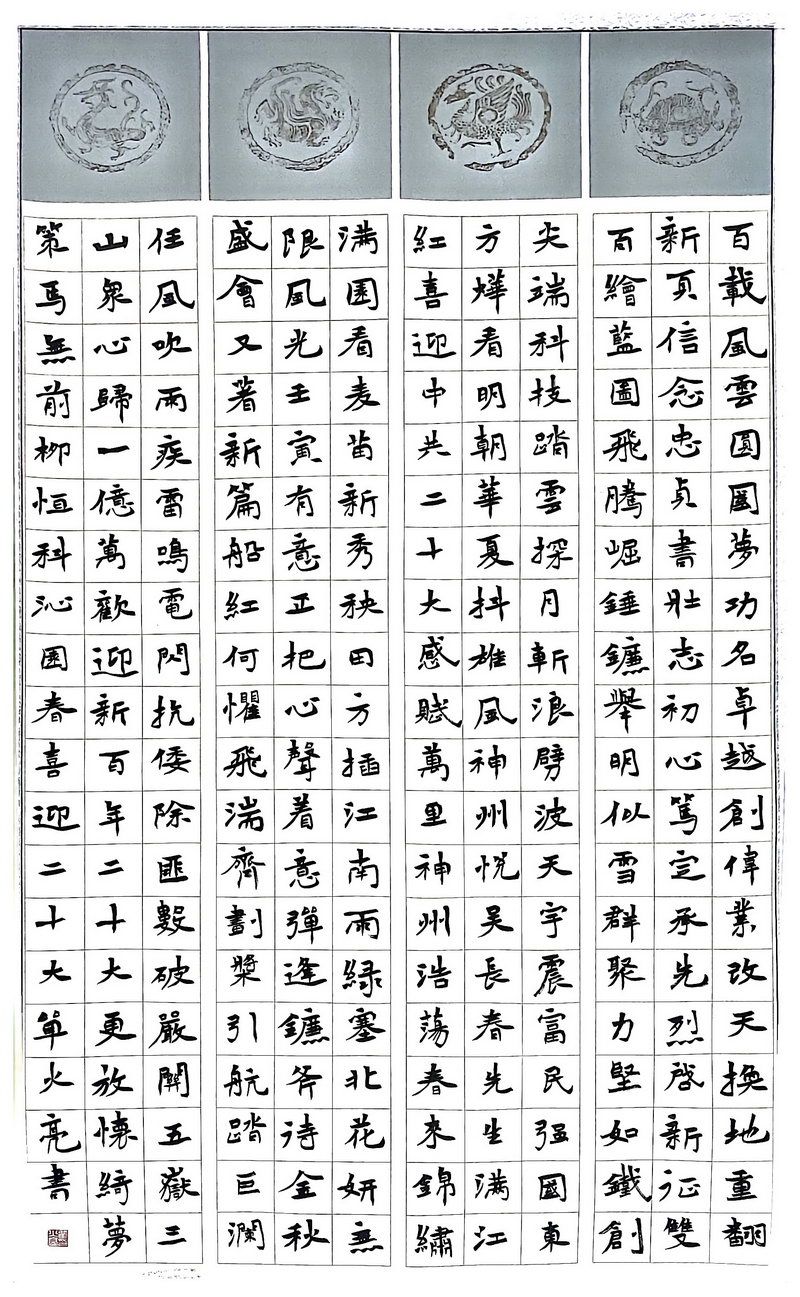 百載風雲圓國夢功名卓越創偉業改天換地重翻
新頁信念忠貞書壯志初心篤定承先烈啓新征雙
百繪藍圖飛騰崛錘鐮舉明似雪群聚力堅如鐵創
尖端科技踏雲探月斬浪劈波天宇震富民强國東
方燁看明朝華夏抖雄風神州悦吴長春先生满江
紅喜迎中共二十大感賦萬里神州浩蕩春來錦繡
满園看麦苗新秀秧田方插江南雨緑塞北花妍無
限風光壬寅有意正把心聲着意彈逢鐮斧待金秋
盛會又著新篇船紅何懼飛湍齊劃槳引航踏巨瀾
任風吹雨疾雷鳴電閃抗倭除匪數破嚴關五嶽三
山衆心歸一億萬歡迎新百年二十大更放懷綺夢
策馬無前柳恒科沁園春喜迎二十大單火亮書